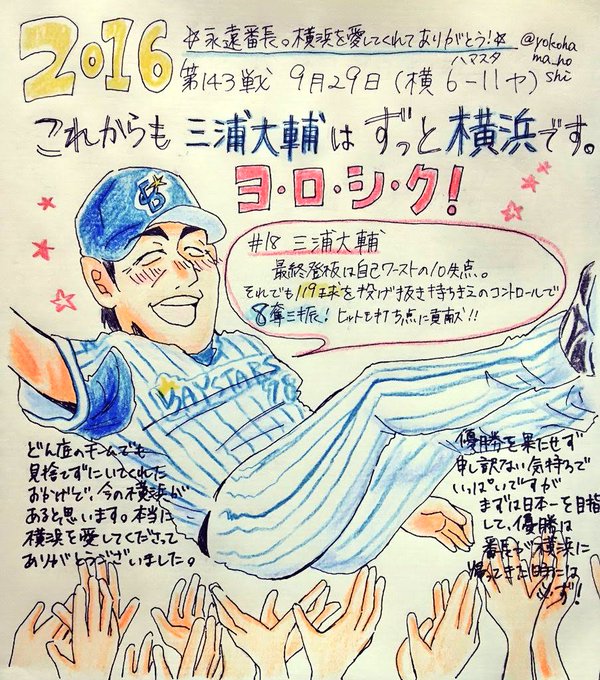 2016
☆永遠番長。横浜を愛してくれてありがとう!☆
@yokohama_hoshi
第143戦 9月29日(横6-11ヤ)
ハマスタ
これからも三浦大輔はずっと横浜です。
ヨ・ロ・シ・ク!
#18 三浦大輔
最終登板は自己ワーストの10失点。
それでも119球を投げ抜き持ちまえのコントロールで
8奪三振!ヒットも打ち点に貢献ズ!!
BAYSTARS
18
どん底のチームでも
見捨てずにいてくれた
おかげで、今の横浜が
あると思います。本当に
横浜を愛してくださって
ありがとうございました。
優勝を果たせず
申し訳ない気持ちで
いっぱいですが
まずは日本一を目指
して、優勝は
番長が横浜に
帰ってきた時には
必ず!